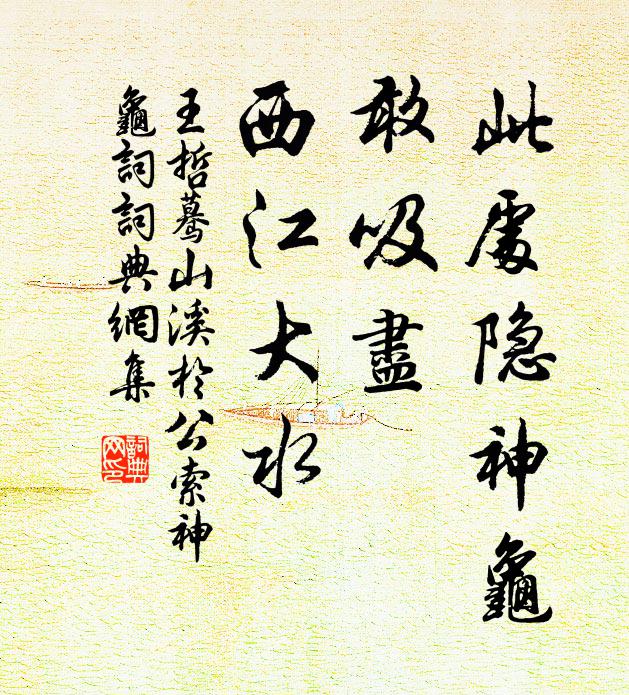 此處隐神龜
敢吸盡
西江大水
王哲驀山溪於公索神
龜詞詞典網集
詞典网印